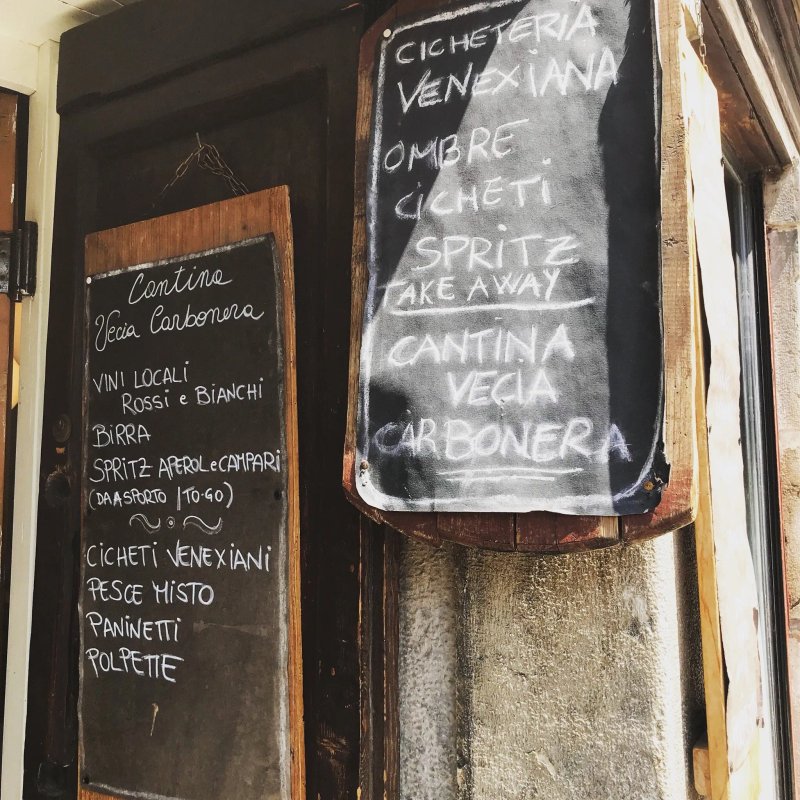 Cantina
Vecia Carbonera
VINI LOCALI
ROSSI e BIANCHI
BIRRA
SPRITZ APEROL e CAMPARI
(DA ASPORTO / TO-GO)
CICHETI VENEXIANI
PESCE MISTO
PANINETTI
POLPETTE
CICHETERIA
VENEXIANA
OMBRE
CICHETI
SPRITZ
TAKE AWAY
CANTINA
VECIA
CARBONERA